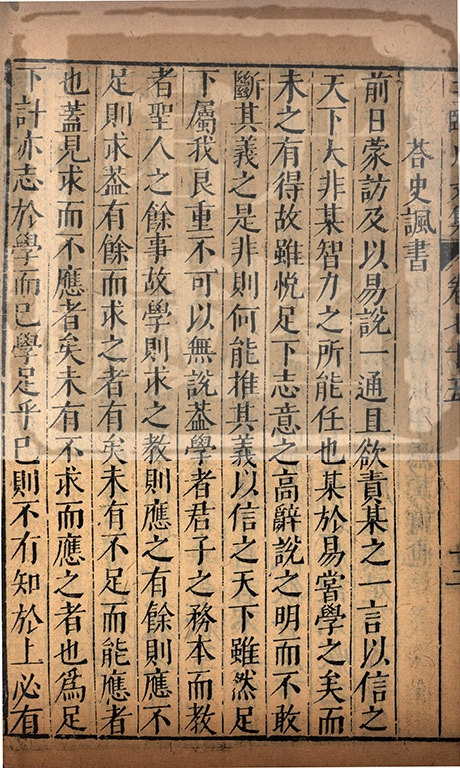 卷七十五
荅史諷書
前日蒙訪及以易說一通且欲責某之一言以信之
天下大非某智力之所能任也某於易嘗學之矣而
未之有得故雖悦足下志意之高辭說之明而不敢
斷其義之是非則何能推其義以信之天下雖然足
下屬我良重不可以無說葢學者君子之務本而教
者聖人之餘事故學則求之教則應之有餘則應不
足則求葢有餘而求之者有矣未有不足而能應者
也蓋見求而不應者矣未有不求而應之者也爲足
下計亦志於學而已學足乎已則不有知於上必有